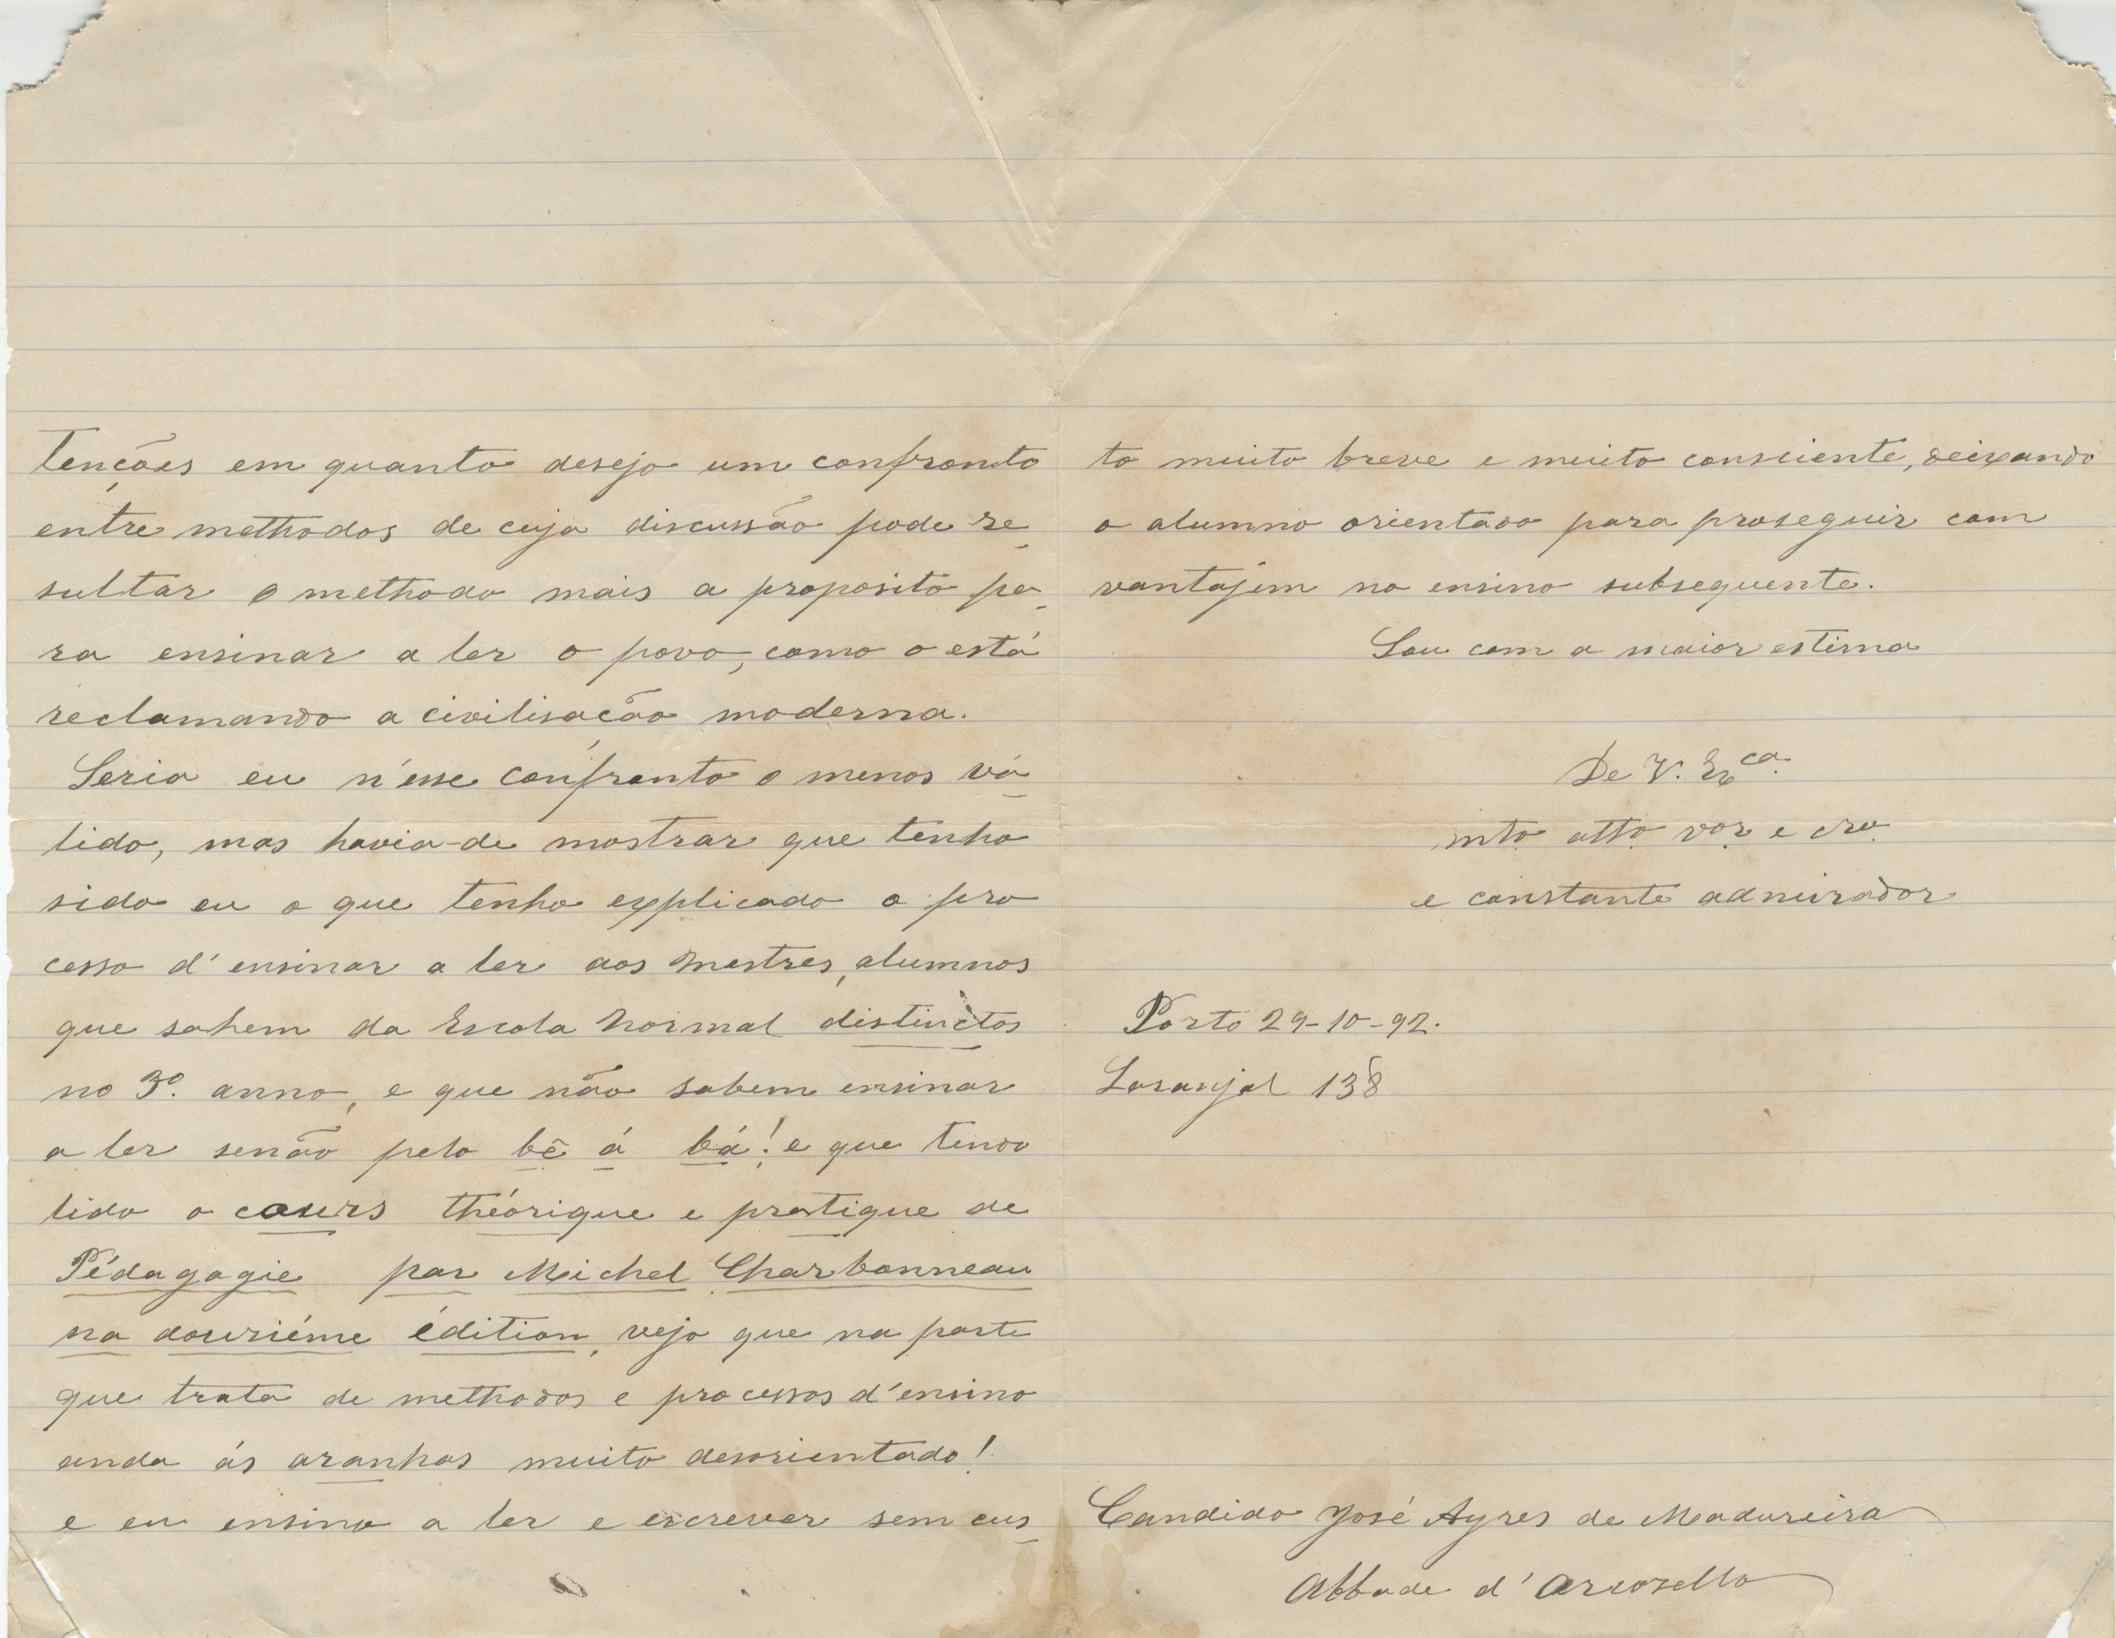 tenções em quanto desejo um confronto
entre methodos de cuja discussão pode re-
sultar o methodo mais a proposito pa-
ra ensinar a ler o povo, como o está
reclamando a civilisação moderna.
Seria eu n'esse confronto o menos vá-
lido, mas havia-de mostrar que tenho
sido eu o que tenho explicado o pro
cesso d'ensinar a ler aos mestres, alumnos
que sahem da Escola Normal distinctos
no 3º. anno, e que não sabem ensinar
a ler senão pelo bê á bá! e que tendo
lido o cours théorique e pratique de
Pédagogie par Michel Charbonneau
na douziéme édition, vejo que na parte
que trata de methodos e processos d'ensino
anda ás aranhas muito desorientado!
e eu ensino a ler e escrever sem cus-
to muito breve e muito consciente, deixando
o alumno orientado para proseguir com
vantajem no ensino subsequente.
Sou com a maior estima
De V. Exca.
mto. atto. vor. e cro.
e constante admirador
Porto 29-10-92.
Laranjal 138
Candido José Ayres de Madureira
Abbade d'Arcozello